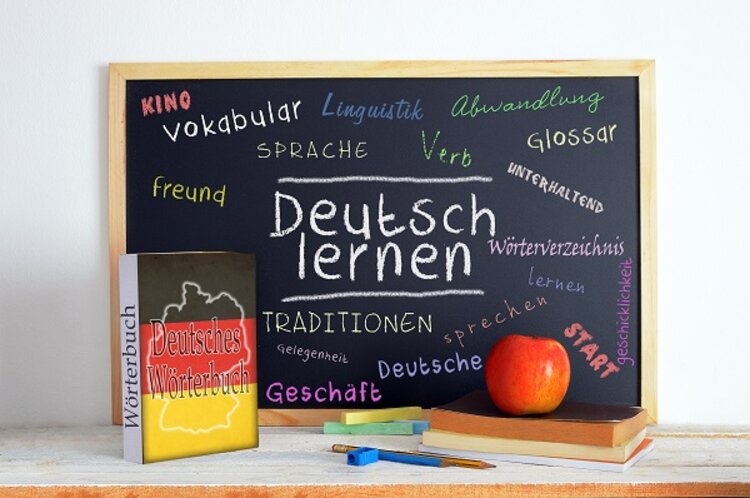 KINO
Vokabular
Linguistik
Abwandlung
Glossar
SPRACHE
Verb
UNTERHALTEND
Freund
Deutsch
lernen
Wörterverzeichnis
lernen
geschicklichkeit
TRADITIONEN
sprechen
START
Gelegenheit
Deutsche
Geschäft
Wörterbuch
Deutsches
Wörterbuch